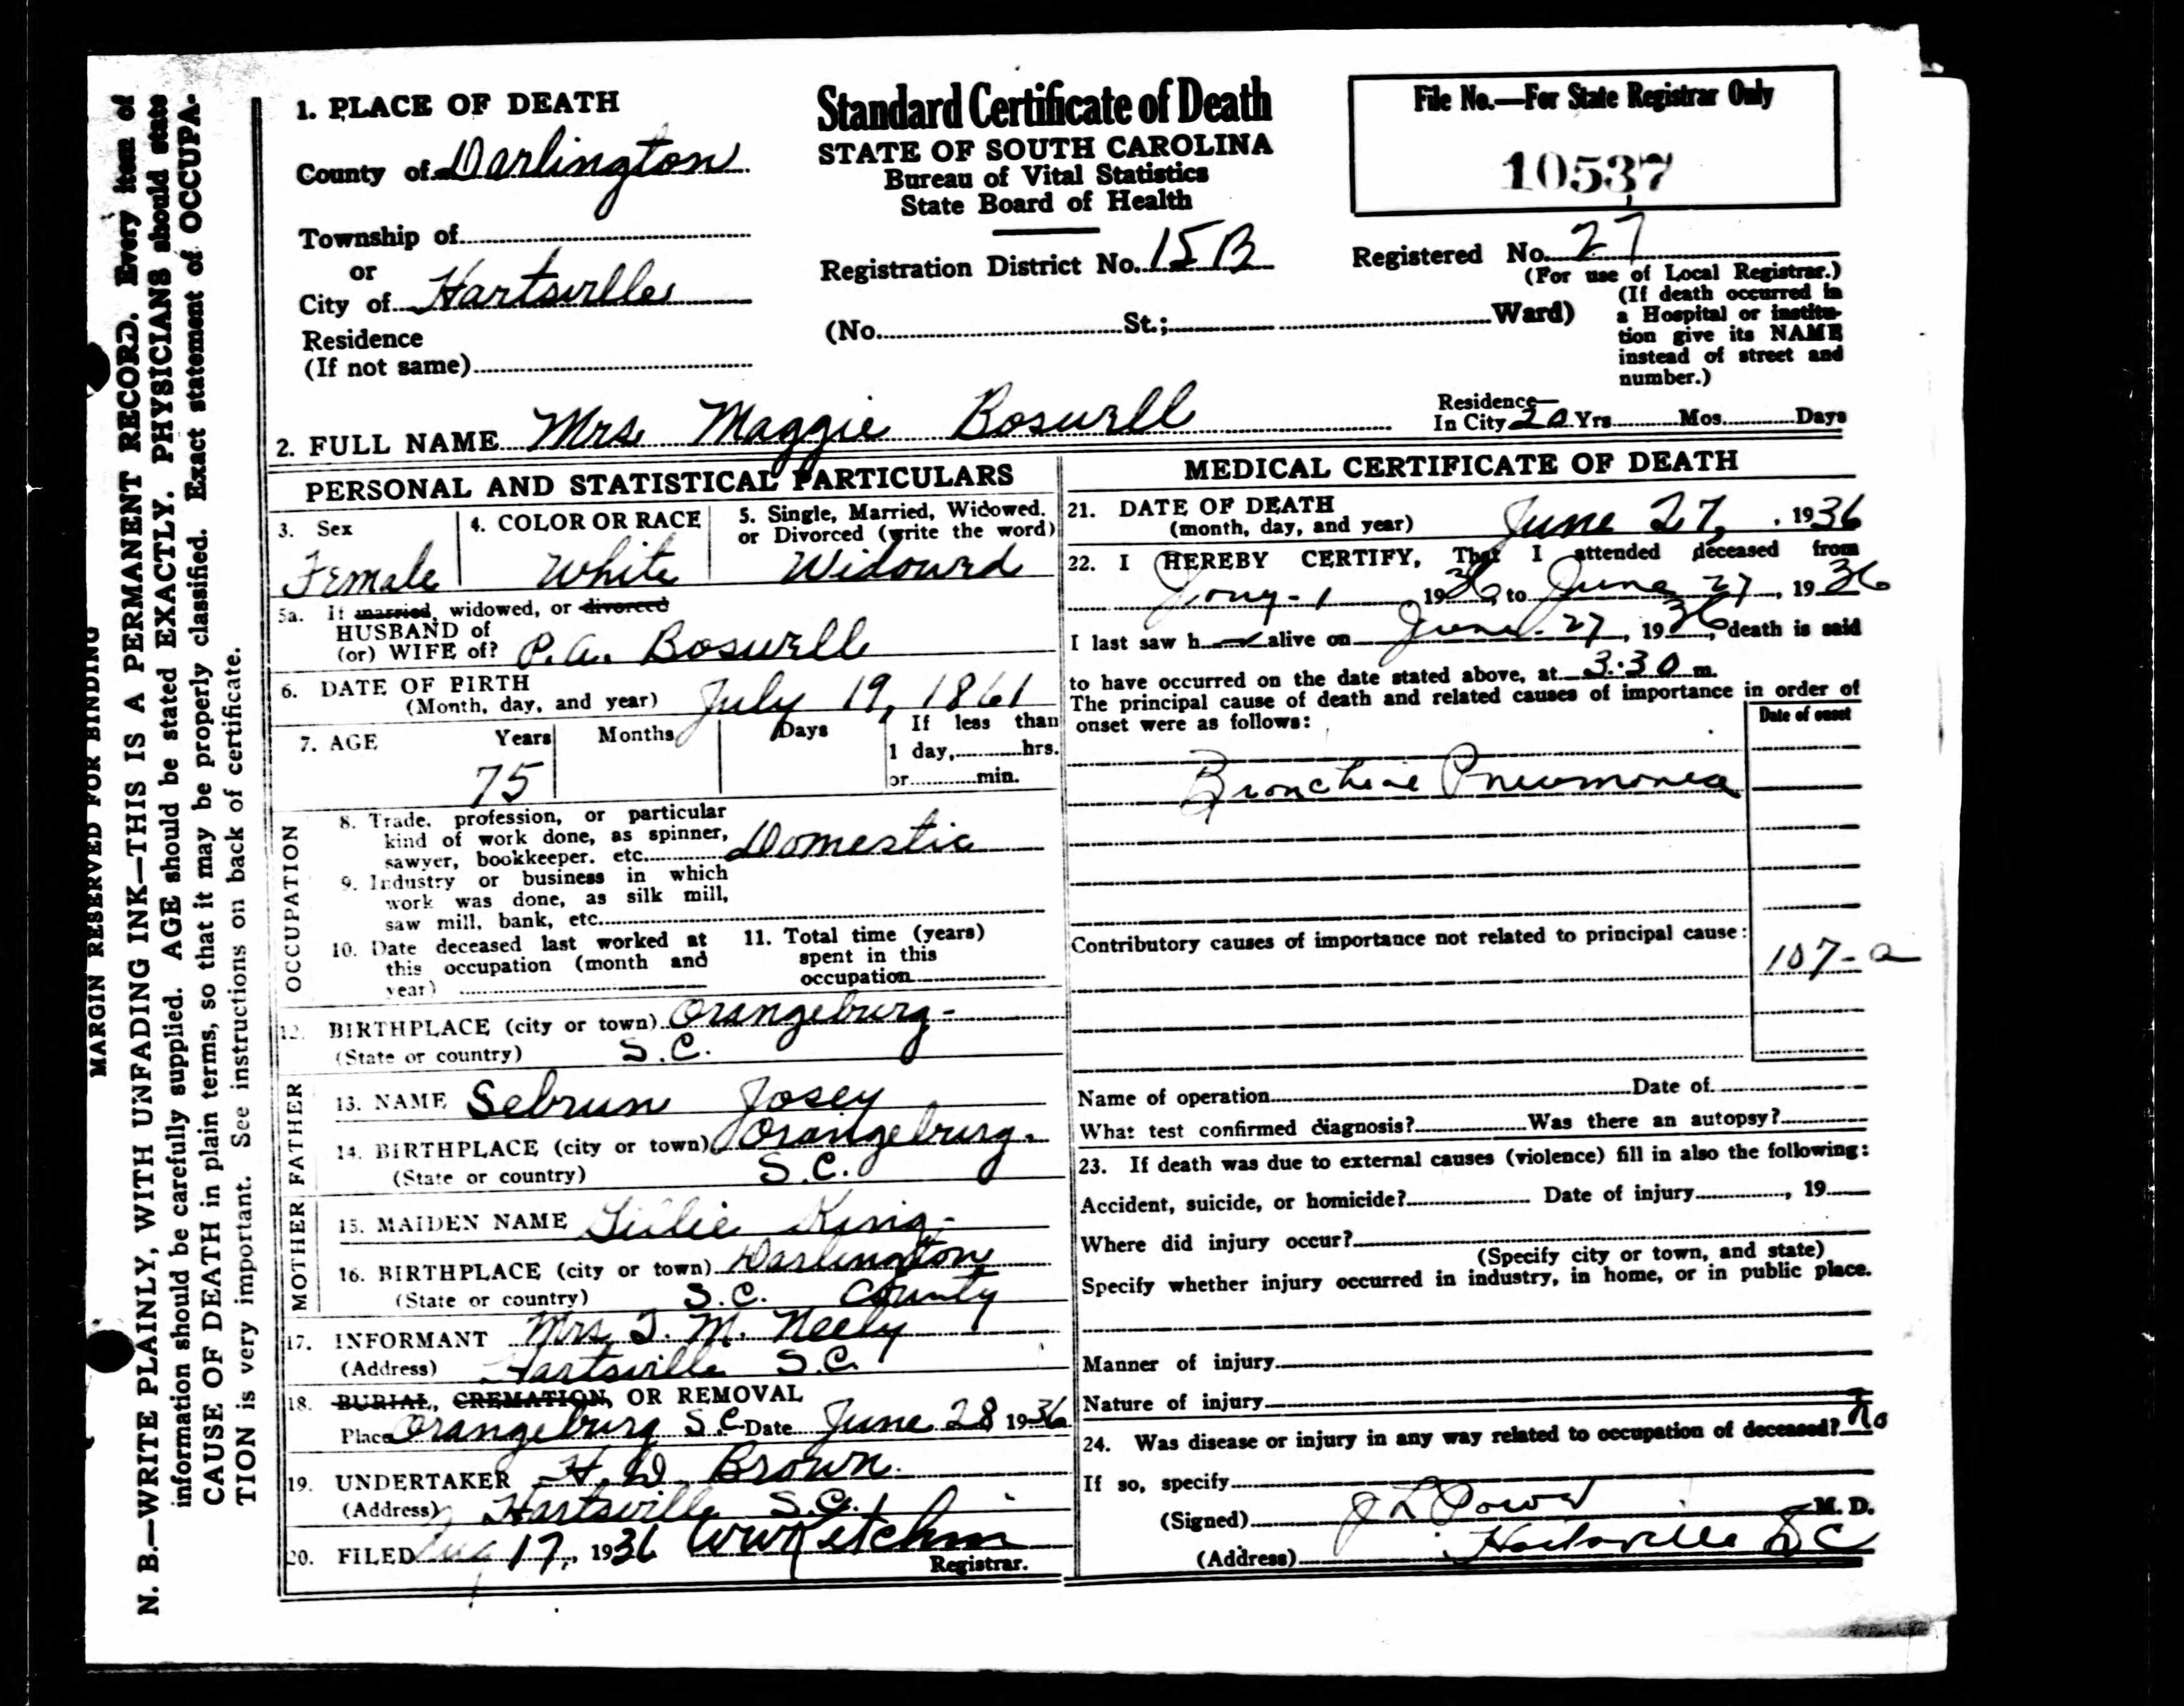 MARGIN RESERVED FOR BINDING
N. B.—WRITE PLAINLY, WITH UNFADING INK—THIS IS A PERMANENT RECORD. Every item of
information should be carefully supplied. AGE should be stated EXACTLY. PHYSICIANS should state
CAUSE OF DEATH in plain terms, so that it may be properly classified. Exact statement of OCCUPA-
TION is very important. See instructions on back of certificate.
1. PLACE OF DEATH
County of Darlington
Township of
or
City of Hartsville
Residence
(If not same)
Standard Certificate of Death
STATE OF SOUTH CAROLINA
Bureau of Vital Statistics
State Board of Health
Registration District No. 15B
(No. St.; Ward)
File No.—For State Registrar Only
10537
Registered No. 27
(For use of Local Registrar.)
(If death occurred in
a Hospital or institu-
tion give its NAME
instead of street and
number.)
2. FULL NAME Mrs Maggie Boswell
Residence—
In City 20 Yrs. Mos. Days
PERSONAL AND STATISTICAL PARTICULARS
3. Sex
Female
4. COLOR OR RACE
White
5. Single, Married, Widowed,
or Divorced (write the word)
Widowed
5a. If married, widowed, or divorced
HUSBAND of
(or) WIFE of? P.A. Boswell
6. DATE OF BIRTH
(Month, day, and year) July 19, 1861
7. AGE Years Months Days If less than
1 day, hrs.
75 or min.
OCCUPATION
8. Trade, profession, or particular
kind of work done, as spinner,
sawyer, bookkeeper, etc. Domestic
9. Industry or business in which
work was done, as silk mill,
saw mill, bank, etc.
10. Date deceased last worked at
this occupation (month and
year)
11. Total time (years)
spent in this
occupation
12. BIRTHPLACE (city or town) Orangeburg-
(State or country) S.C.
FATHER
13. NAME Sebrun Josey
14. BIRTHPLACE (city or town) Orangeburg.
(State or country) S.C.
MOTHER
15. MAIDEN NAME King-
16. BIRTHPLACE (city or town) Darlington
(State or country) S.C. County
17. INFORMANT Mrs M. Neely
(Address) Hartsville S.C.
18. BURIAL, CREMATION, OR REMOVAL
Place Orangeburg S.C Date June 28 1936
19. UNDERTAKER H. D. Brown.
(Address) Hartsville S.C.
20. FILED Aug 17, 1936
Registrar.
MEDICAL CERTIFICATE OF DEATH
21. DATE OF DEATH
(month, day, and year) June 27, , 1936
22. I HEREBY CERTIFY, That I attended deceased from
1936, to June 27, 1936
I last saw h alive on June 27, 1936, death is said
to have occurred on the date stated above, at 3:30 m.
The principal cause of death and related causes of importance in order of
onset were as follows:
Date of onset
Pneumonia
Contributory causes of importance not related to principal cause:
107-a
Name of operation Date of
What test confirmed diagnosis? Was there an autopsy?
23. If death was due to external causes (violence) fill in also the following:
Accident, suicide, or homicide? Date of injury , 19
Where did injury occur?
(Specify city or town, and state)
Specify whether injury occurred in industry, in home, or in public place.
Manner of injury
Nature of injury
24. Was disease or injury in any way related to occupation of deceased? No
If so, specify
(Signed) M. D.
(Address) Hartsville SC